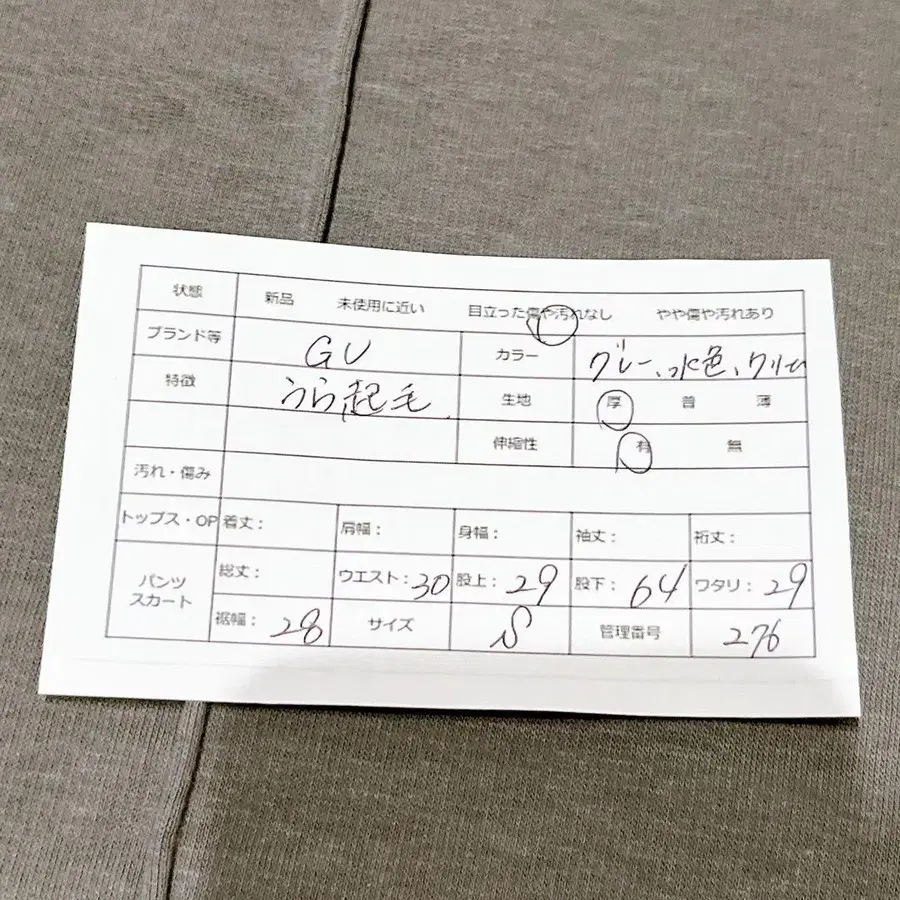 状態 新品 未使用に近い 目立った傷や汚れなし やや傷や汚れあり
ブランド等 GU カラー グレー、水色、クリーム
特徴 うら起毛 生地 厚 普 薄
伸縮性 有 無
汚れ・傷み
トップス・OP 着丈: 肩幅: 身幅: 袖丈: 裄丈:
パンツ スカート 総丈: ウエスト:30 股上:29 股下:64 ワタリ:29
裾幅:28 サイズ S 管理番号 276